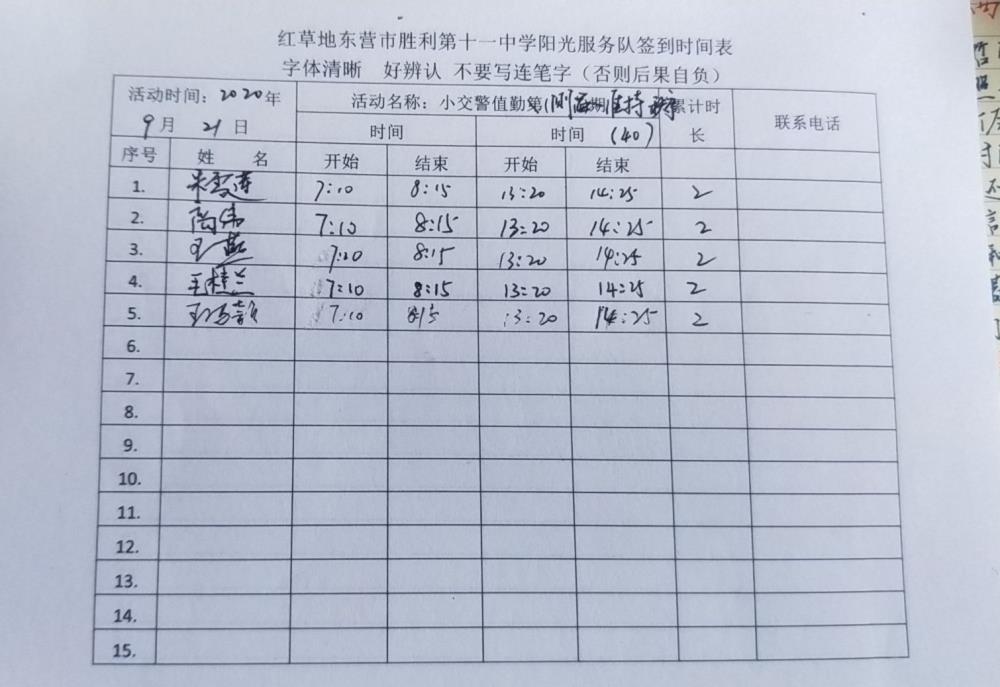 红草地东营市胜利第十一中学阳光服务队签到时间表
字体清晰 好辨认 不要写连笔字（否则后果自负）
活动时间：2020年 9月 21日 活动名称：小交警值勤第( 期 维持 累计时长 联系电话
时间 时间 (40)
序号 姓 名 开始 结束 开始 结束
1. 朱雪莲 7:10 8:15 13:20 14:25 2
2. 陶伟 7:10 8:15 13:20 14:25 2
3. 王燕 7:10 8:15 13:20 14:25 2
4. 王桂兰 7:10 8:15 13:20 14:25 2
5. 7:10 8:15 13:20 14:25 2
6.
7.
8.
9.
10.
11.
12.
13.
14.
15.